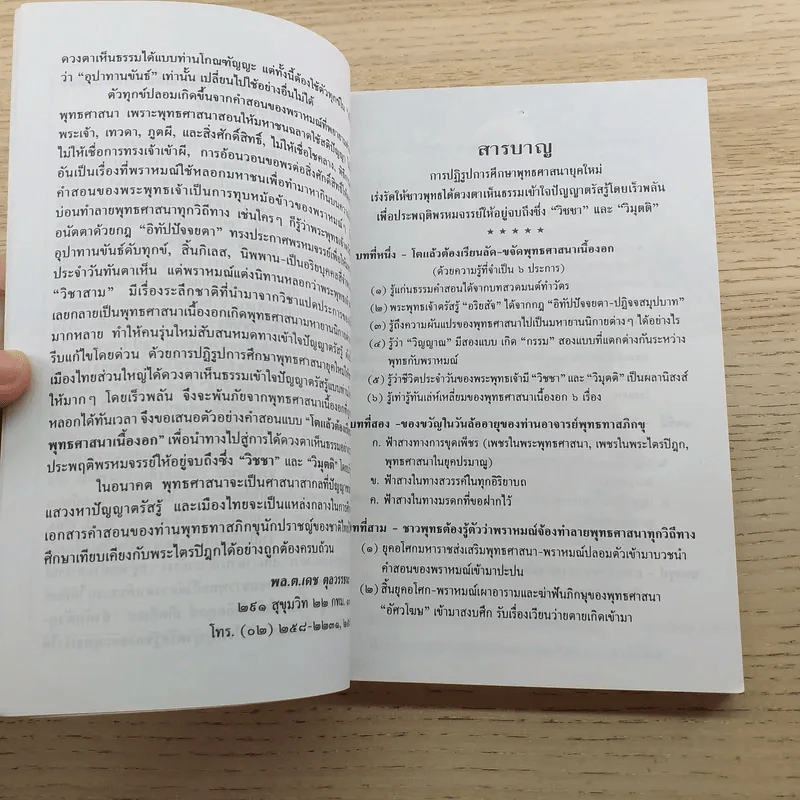 ดวงตาเห็นธรรมได้แบบท่านโกณฑัญญะ แต่ทั้งนี้ต้องใช้ตัวทุกข์ใน
ว่า “อุปาทานขันธ์” เท่านั้น เปลี่ยนไปใช้อย่างอื่นไม่ได้
ตัวทุกข์ปลอมเกิดขึ้นจากคำสอนของพราหมณ์ที่
พุทธศาสนา เพราะพุทธศาสนาสอนให้มหาชนฉลาดใช้สติปัญญา
พระเจ้า, เทวดา, ภูตผี, และสิ่งศักดิ์สิทธิ์, ไม่ให้เชื่อโชคลาง,
ไม่ให้เชื่อการทรงเจ้าเข้าผี, การอ้อนวอนขอพรต่อสิ่งศักดิ์สิทธิ์
อันเป็นเรื่องที่พราหมณ์ใช้หลอกมหาชนเพื่อทำมาหากิน
คำสอนของพระพุทธเจ้าเป็นการทุบหม้อข้าวของพราหมณ์
บ่อนทำลายพุทธศาสนาทุกวิถีทาง เช่นใครๆ ก็รู้ว่าพระพุทธเจ้า
อนัตตาด้วยกฎ “อิทัปปัจจยตา” ทรงประกาศพรหมจรรย์
อุปาทานขันธ์ดับทุกข์, สิ้นกิเลส, นิพพาน-เป็นอริยบุคคล
ประจำวันทันตาเห็น แต่พราหมณ์แต่งนิทานหลอกว่า
“วิชาสาม” มีเรื่องระลึกชาติที่นำมาจากวิชาแปดประการ
เลยกลายเป็นพุทธศาสนาเนื้องอกเกิดพุทธศาสนามหายานนิกาย
มากหลาย ทำให้คนรุ่นใหม่สับสนหมดทางเข้าใจปัญญาตรัสรู้
รีบแก้ไขโดยด่วน ด้วยการปฏิรูปการศึกษาพุทธศาสนายุคใหม่
เมืองไทยส่วนใหญ่ได้ดวงตาเห็นธรรมเข้าใจปัญญาตรัสรู้
ให้มากๆ โดยเร็วพลัน จึงจะพ้นภัยจากพุทธศาสนาเนื้องอก
หลอกได้ทันเวลา จึงขอเสนอตัวอย่างคำสอนแบบ “โตแล้วต้อง
พุทธศาสนาเนื้องอก” เพื่อนำทางไปสู่การได้ดวงตาเห็นธรรม
ประพฤติพรหมจรรย์ให้อยู่จบถึงซึ่ง “วิชชา” และ “วิมุตติ”
ในอนาคต พุทธศาสนาจะเป็นศาสนาสากลที่ปัญญาชน
แสวงหาปัญญาตรัสรู้ และเมืองไทยจะเป็นแหล่งกลางในการ
เอกสารคำสอนของท่านพุทธทาสภิกขุนักปราชญ์ของชาติ
ศึกษาเทียบเคียงกับพระไตรปิฎกได้อย่างถูกต้องครบถ้วน
พล.ต.เดช ตุลวรรธนะ
๒๙๑ สุขุมวิท ๒๒ กทม.
โทร. (๐๒) ๒๕๘-๒๒๓๑,
สารบาญ
การปฏิรูปการศึกษาพุทธศาสนายุคใหม่
เร่งรัดให้ชาวพุทธได้ดวงตาเห็นธรรมเข้าใจปัญญาตรัสรู้โดยเร็วพลัน
เพื่อประพฤติพรหมจรรย์ให้อยู่จบถึงซึ่ง “วิชชา” และ “วิมุตติ”
★ ★ ★ ★ ★
บทที่หนึ่ง - โตแล้วต้องเรียนลัด-ขจัดพุทธศาสนาเนื้องอก
(ด้วยความรู้ที่จำเป็น ๖ ประการ)
(๑) รู้แก่นธรรมคำสอนได้จากบทสวดมนต์ทำวัตร
(๒) พระพุทธเจ้าตรัสรู้ “อริยสัจ” ได้จากกฎ “อิทัปปัจจยตา-ปฏิจจสมุปบาท”
(๓) รู้ถึงความผันแปรของพุทธศาสนาไปเป็นมหายานนิกายต่างๆ ได้อย่างไร
(๔) รู้ว่า “วิญญาณ” มีสองแบบ เกิด “กรรม” สองแบบที่แตกต่างกันระหว่าง
พุทธกับพราหมณ์
(๕) รู้ว่าชีวิตประจำวันของพระพุทธเจ้ามี “วิชชา” และ “วิมุตติ” เป็นผลานิสงส์
(๖) รู้เท่ารู้ทันเล่ห์เหลี่ยมของพุทธศาสนาเนื้องอก ๖ เรื่อง
บทที่สอง -ของขวัญในวันล้ออายุของท่านอาจารย์พุทธทาสภิกขุ
ก. ฟ้าสางทางการขุดเพชร (เพชรในพระพุทธศาสนา, เพชรในพระไตรปิฎก,
พุทธศาสนาในยุคปรมาณู)
ข. ฟ้าสางในทางสวรรค์ในทุกอิริยาบถ
ค. ฟ้าสางในทางมรดกที่ขอฝากไว้
ทที่สาม - ชาวพุทธต้องรู้ตัวว่าพราหมณ์จ้องทำลายพุทธศาสนาทุกวิถีทาง
(๑) ยุคอโศกมหาราชส่งเสริมพุทธศาสนา-พราหมณ์ปลอมตัวเข้ามาบวชนำ
คำสอนของพราหมณ์เข้ามาปะปน
(๒) สิ้นยุคอโศก-พราหมณ์เผาอารามและฆ่าฟันภิกษุของพุทธศาสนา
“อัศวโฆษ” เข้ามาสงบศึก รับเรื่องเวียนว่ายตายเกิดเข้ามา